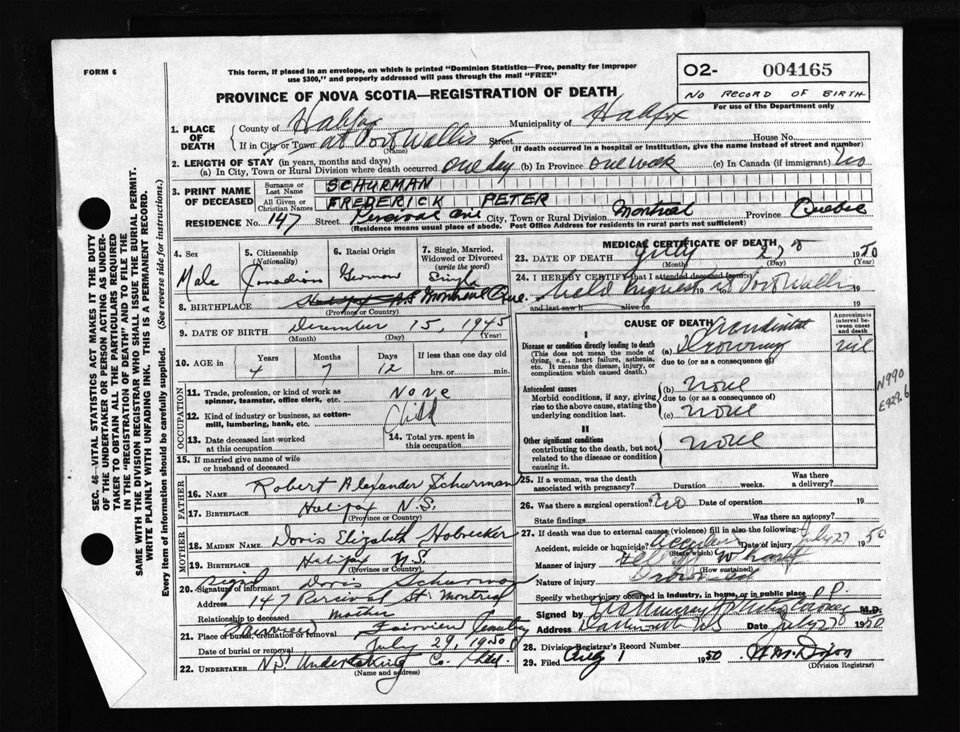 FORM 6
This form, if placed in an envelope, on which is printed "Dominion Statistics—Free, penalty for improper
use $300," and properly addressed will pass through the mail "FREE"
02- 004165
NO RECORD OF BIRTH
For use of the Department only
PROVINCE OF NOVA SCOTIA—REGISTRATION OF DEATH
SEC. 46—VITAL STATISTICS ACT MAKES IT THE DUTY
OF THE UNDERTAKER OR PERSON ACTING AS UNDER-
TAKER TO OBTAIN ALL THE PARTICULARS REQUIRED
IN THE "REGISTRATION OF DEATH" AND TO FILE THE
SAME WITH THE DIVISION REGISTRAR WHO SHALL ISSUE THE BURIAL PERMIT.
WRITE PLAINLY WITH UNFADING INK. THIS IS A PERMANENT RECORD.
Every item of information should be carefully supplied. (See reverse side for instructions.)
1. PLACE OF DEATH County of Halifax Municipality of Halifax
If in City or Town at Port Wallis Street House No.
(Name) (If death occurred in a hospital or institution, give the name instead of street and number)
2. LENGTH OF STAY (in years, months and days)
(a) In City, Town or Rural Division where death occurred one day (b) In Province one week (c) In Canada (if immigrant) no
3. PRINT NAME OF DECEASED Surname or Last Name SCHURMAN
All Given or Christian Names FREDERICK PETER
RESIDENCE No. 147 Street Percival ave City, Town or Rural Division Montreal Province Quebec
(Residence means usual place of abode. Post Office Address for residents in rural parts not sufficient)
4. Sex Male
5. Citizenship (Nationality) Canadian
6. Racial Origin German
7. Single, Married, Widowed or Divorced (write the word) Single
8. BIRTHPLACE Montreal Que.
(Province or Country)
9. DATE OF BIRTH December 15, 1945
(Month) (Day) (Year)
10. AGE in Years Months Days If less than one day old
4 7 12 hrs. or min.
OCCUPATION
11. Trade, profession, or kind of work as spinner, teamster, office clerk, etc. None
12. Kind of industry or business, as cotton-mill, lumbering, bank, etc. Child
13. Date deceased last worked at this occupation
14. Total yrs. spent in this occupation
15. If married give name of wife or husband of deceased
FATHER
16. NAME Robert Alexander Schurman
17. BIRTHPLACE Halifax N.S.
(Province or Country)
MOTHER
18. MAIDEN NAME Doris Elizabeth Hobrecker
19. BIRTHPLACE Halifax N.S.
(Province or Country)
20. Signature of informant Sigd Doris Schurman
Address 147 Percival St. Montreal
Relationship to deceased Mother
21. Place of burial, cremation or removal Fairview Cemetery
Date of burial or removal July 29, 1950
22. UNDERTAKER N.S. Undertaking Co. Ltd.
(Name and address)
MEDICAL CERTIFICATE OF DEATH
23. DATE OF DEATH July 1950
(Day) (Year)
24. I HEREBY CERTIFY that I attended deceased from
held Inquest at Port Wallis 19
and last saw h alive on 19
CAUSE OF DEATH
Approximate interval between onset and death
I
Disease or condition directly leading to death
(This does not mean the mode of dying, e.g., heart failure, asthenia, etc. It means the disease, injury, or complication which caused death.)
Accidental
(a) Drowning
due to (or as a consequence of)
Antecedent causes
Morbid conditions, if any, giving rise to the above cause, stating the underlying condition last.
(b) none
due to (or as a consequence of)
(c) none
II
Other significant conditions
contributing to the death, but not related to the disease or condition causing it.
none
N990
E929.6
25. If a woman, was the death associated with pregnancy? Duration weeks. Was there a delivery?
26. Was there a surgical operation? no Date of operation 19
State findings Was there an autopsy?
27. If death was due to external causes (violence) fill in also the following:
Accident, suicide or homicide? Accident Date of injury July 27 1950
(State which)
Manner of injury Fell off Wharf
(How sustained)
Nature of injury Drowned
Specify whether injury occurred in industry, in home, or in public place
Signed by M.D.
Address Dartmouth NS Date July 1950
28. Division Registrar's Record Number
29. Filed Aug 1 1950
(Division Registrar)